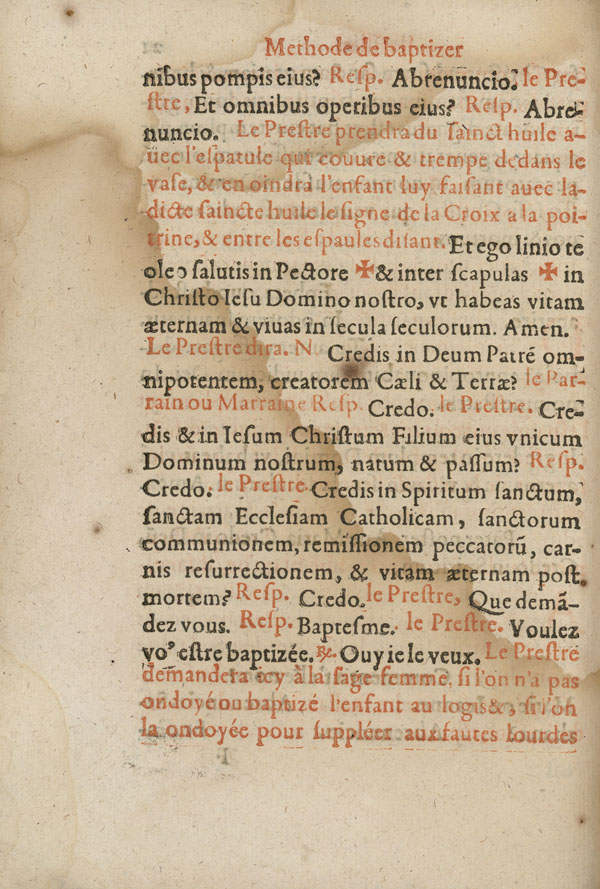 Methode de baptizer
nibus pompis eius? Resp. Abrenuncio. le Pre-
stre, Et omnibus operibus eius? Resp. Abre-
nuncio. Le Prestre prendra du sainct huile a-
uec l'espatule qui couure & trempe dedans le
vase, & en oindra l'enfant luy faisant auec la-
dicte saincte huile le signe de la Croix a la poi-
trine, & entre les espaules disant. Et ego linio te
oleo salutis in Pectore ✠ & inter scapulas ✠ in
Christo Iesu Domino nostro, vt habeas vitam
æternam & viuas in secula seculorum. Amen.
Le Prestre dira. N Credis in Deum Patrẽ om-
nipotentem, creatorem Cæli & Terræ? le Par-
rain ou Marraine Resp. Credo. le Prestre. Cre-
dis & in Iesum Christum Filium eius vnicum
Dominum nostrum, natum & passum? Resp.
Credo. le Prestre. Credis in Spiritum sanctum,
sanctam Ecclesiam Catholicam, sanctorum
communionem, remissionem peccatorũ, car-
nis resurrectionem, & vitam æternam post
mortem? Resp. Credo. le Prestre, Que demã-
dez vous. Resp. Baptesme. le Prestre. Voulez
vo⁹ estre baptizée. ℟. Ouy ie le veux. Le Prestre
demandera icy à la sage femme, si l'on n'a pas
ondoyé ou baptizé l'enfant au logis&, si l'on
la ondoyée pour suppléer aux fautes lourdes